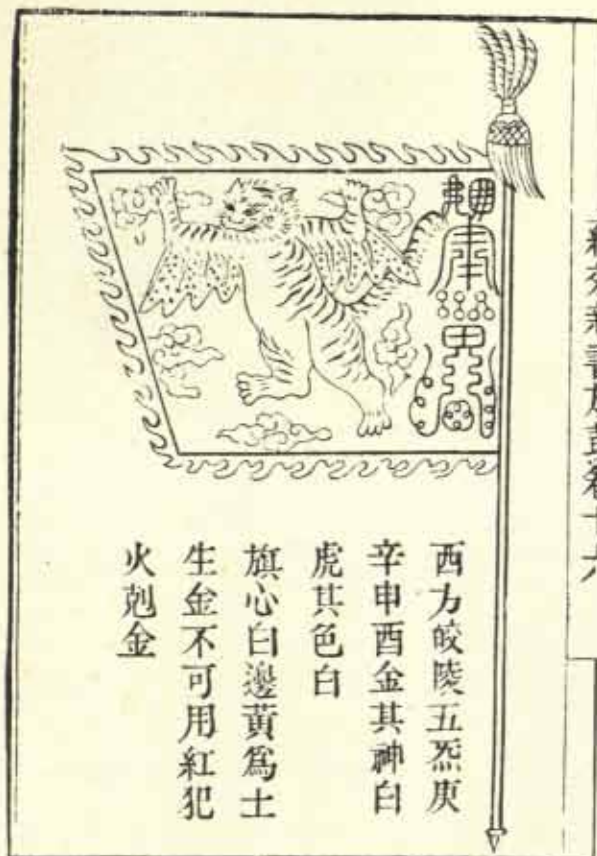 西方皎陵五炁庚
辛申酉金其神白
虎其色白
旗心白邊黃為土
生金不可用紅犯
火剋金